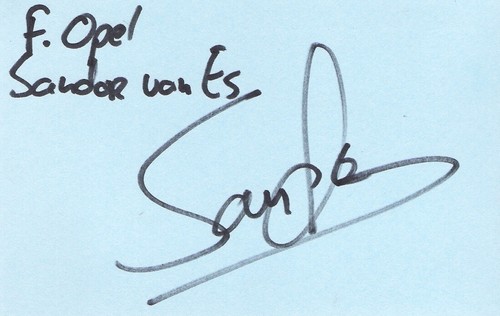 F. Opel
Sandor van Es
Sandor